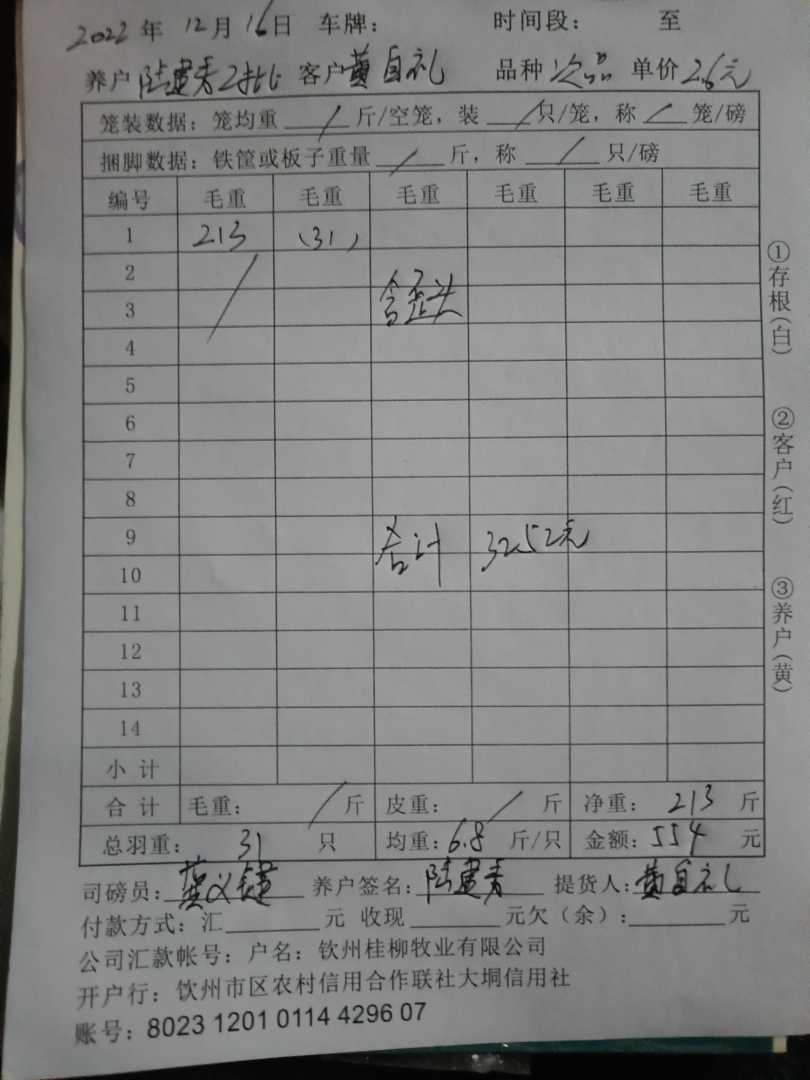 2022 年 12 月 16 日 车牌： 时间段： 至
养户 陆建秀2批 客户 黄自礼 品种 次品 单价 2.6元
笼装数据：笼均重 / 斤/空笼，装 / 只/笼，称 / 笼/磅
捆脚数据：铁筐或板子重量 / 斤，称 / 只/磅
编号 毛重 毛重 毛重 毛重 毛重 毛重
1 213 (31)
2
3 含歪头
4
5
6
7
8
9 合计 3252元
10
11
12
13
14
小计
合计 毛重： / 斤 皮重： / 斤 净重： 213 斤
总羽重： 31 只 均重：6.8 斤/只 金额：554 元
司磅员： 养户签名：陆建秀 提货人：黄自礼
付款方式：汇 元 收现 元欠（余）： 元
公司汇款帐号：户名：钦州桂柳牧业有限公司
开户行：钦州市区农村信用合作联社大垌信用社
账号：8023 1201 0114 4296 07
①存根(白)
②客户(红)
③养户(黄)